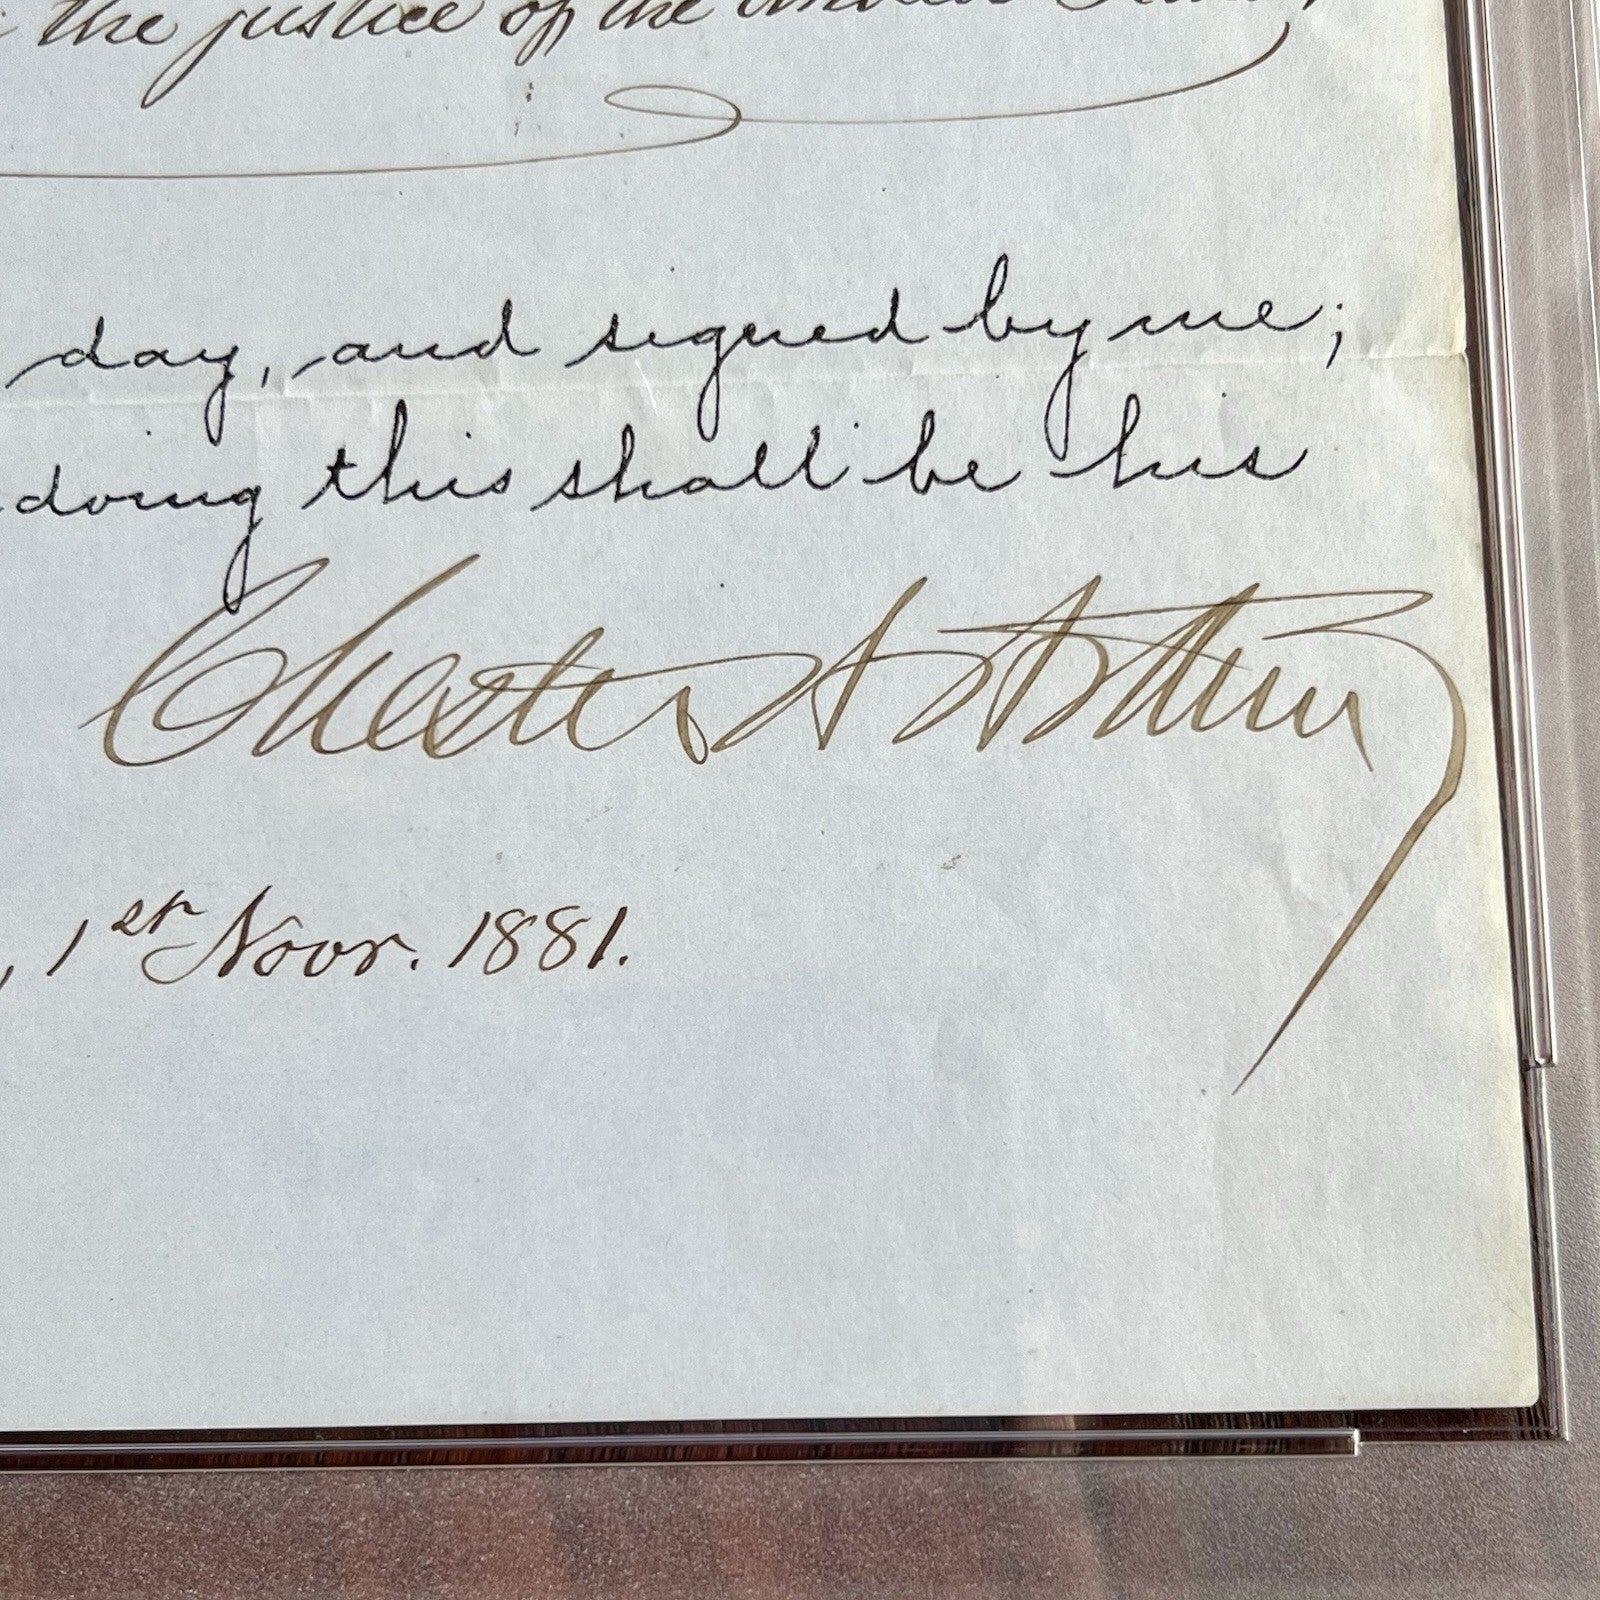 the justice of the United States,
day, and signed by me;
doing this shall be his
Chester A Arthur
, 1st Novr. 1881.